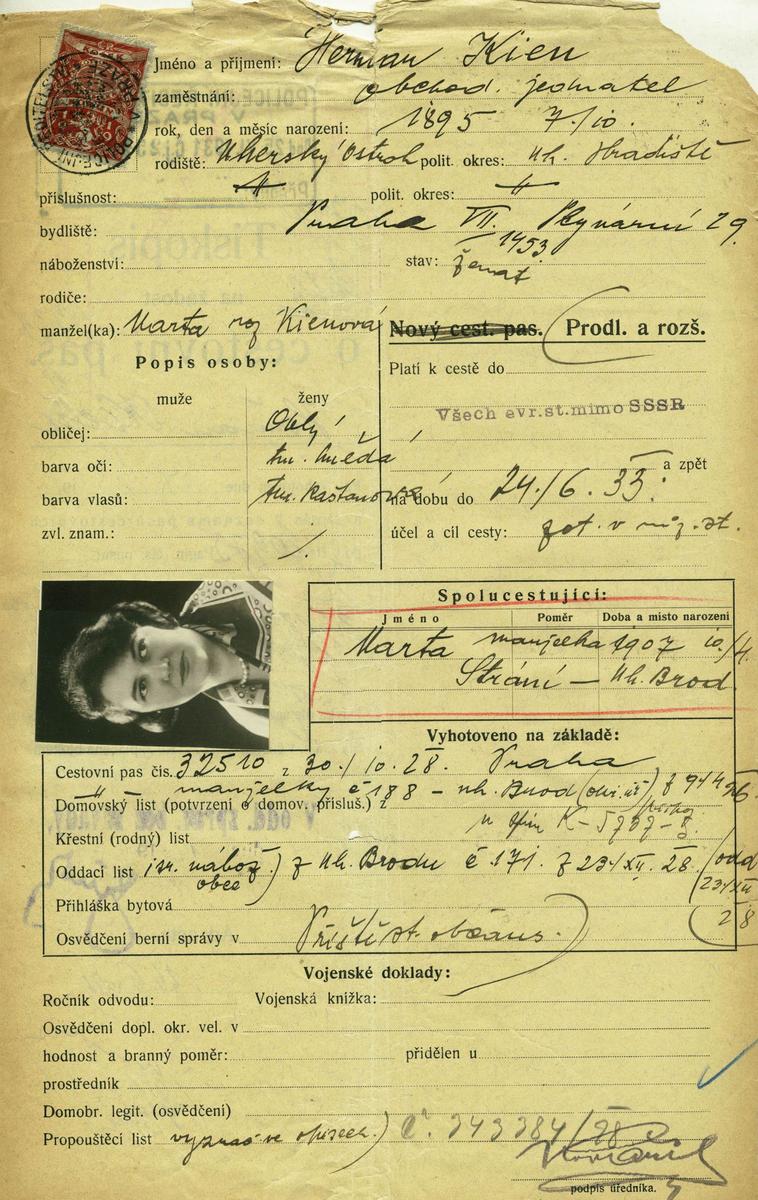 Jméno a příjmení: Herman Kien
zaměstnání: obchod. jednatel
rok, den a měsíc narození: 1895 7/10.
rodiště: Uherský Ostroh polit. okres: uh. Hradiště
příslušnost: -"- polit. okres: -"-
bydliště: Praha VII. 29
1453
náboženství: stav: ženat
rodiče:
manžel(ka): Marta roz Kienová
Nový cest. pas. Prodl. a rozš.
Popis osoby:
Platí k cestě do
muže ženy
Všech evr.st.mimo SSSR
obličej: Oblý
barva očí: tm. hnědá
a zpět
barva vlasů: tm. kaštanová
na dobu do 24./6. 33.
zvl. znam.: /.
účel a cíl cesty: v st.
Spolucestující:
Jméno Poměr Doba a místo narození
Marta manželka 1907 10/4.
Strání – Uh. Brod
Vyhotoveno na základě:
Cestovní pas čís. 32510 z 30./10. 28. Praha
-"- manželky č 188 – uh. Brod z
Domovský list (potvrzení o domov. přísluš.) z
Křestní (rodný) list
Oddací list (isr. nábož. obce) z Uh. Brodu č 171. z 23/XII. 28. (odd
23/XII
28
Přihláška bytová
Osvědčení berní správy v Příští st. občans.)
Vojenské doklady:
Ročník odvodu: Vojenská knížka:
Osvědčení dopl. okr. vel. v
hodnost a branný poměr: přidělen u
prostředník
Domobr. legit. (osvědčení)
Propouštěcí list č. 343384/28
podpis úředníka.